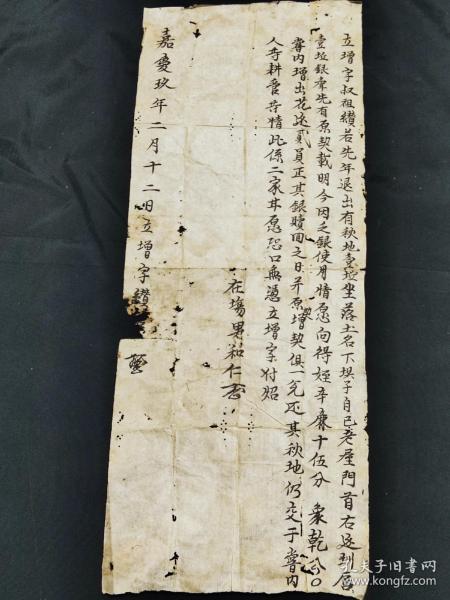 立增字叔祖纘若先年退出有秋地壹坵坐落土名下埧子自己老屋門首右
壹坵銀兩先有原契載明今因乏銀使用情愿向得姪辛廉十伍分
嘗內增出花邊貳員正其銀贖回之日并原增契俱一完还其秋地仍交于嘗內
人等耕管等情此係二家甘愿恐口無憑立增字付炤
在場男和仁
嘉慶玖年二月十二日立增字
孔夫子旧书网